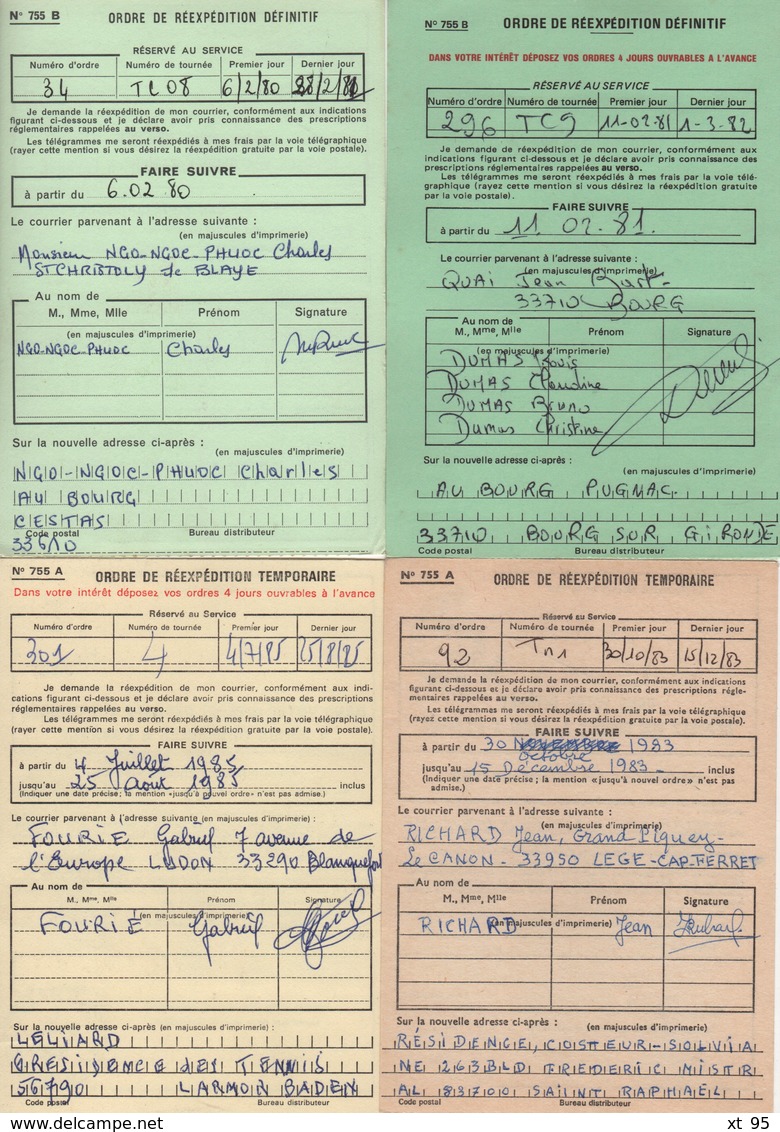 N° 755 B ORDRE DE RÉEXPÉDITION DÉFINITIF
RÉSERVÉ AU SERVICE
Numéro d'ordre Numéro de tournée Premier jour Dernier jour
34 TC08 6/2/80 28/2/81
Je demande la réexpédition de mon courrier, conformément aux indications
figurant ci-dessous et je déclare avoir pris connaissance des prescriptions
réglementaires rappelées au verso.
Les télégrammes me seront réexpédiés à mes frais par la voie télégraphique
(rayer cette mention si vous désirez la réexpédition gratuite par la voie postale).
FAIRE SUIVRE
à partir du 6.02 80
Le courrier parvenant à l'adresse suivante :
(en majuscules d'imprimerie)
Monsieur NGO-NGOC-PHUOC Charles
ST CHRISTOLY de BLAYE
Au nom de
M., Mme, Mlle Prénom Signature
(en majuscules d'imprimerie)
NGO-NGOC-PHUOC Charles
Sur la nouvelle adresse ci-après :
(en majuscules d'imprimerie)
NGO-NGOC-PHUOC Charles
AU BOURG
CESTAS
Code postal Bureau distributeur
33610
N° 755 B ORDRE DE RÉEXPÉDITION DÉFINITIF
DANS VOTRE INTÉRÊT DÉPOSEZ VOS ORDRES 4 JOURS OUVRABLES A L'AVANCE
RÉSERVÉ AU SERVICE
Numéro d'ordre Numéro de tournée Premier jour Dernier jour
296 TC9 11-02-81 1-3-82
Je demande la réexpédition de mon courrier, conformément aux
indications figurant ci-dessous et je déclare avoir pris connaissance des
prescriptions réglementaires rappelées au verso.
Les télégrammes me seront réexpédiés à mes frais par la voie télé-
graphique (rayez cette mention si vous désirez la réexpédition gratuite
par la voie postale).
FAIRE SUIVRE
à partir du 11 02.81.
Le courrier parvenant à l'adresse suivante :
(en majuscules d'imprimerie)
QUAI Jean Bart-
33710 BOURG
Au nom de
M., Mme, Mlle Prénom Signature
(en majuscules d'imprimerie)
DUMAS Louis
DUMAS Claudine
DUMAS Bruno
Dumas Christine
Sur la nouvelle adresse ci-après :
(en majuscules d'imprimerie)
AU BOURG PUGNAC.
33710 BOURG SUR GIRONDE
Code postal Bureau distributeur
N° 755 A ORDRE DE RÉEXPÉDITION TEMPORAIRE
Dans votre intérêt déposez vos ordres 4 jours ouvrables à l'avance
Réservé au Service
Numéro d'ordre Numéro de tournée Premier jour Dernier jour
301 4 4/7/85 25/8/85
Je demande la réexpédition de mon courrier, conformément aux indi-
cations figurant ci-dessous et je déclare avoir pris connaissance des pres-
criptions réglementaires rappelées au verso.
Les télégrammes me seront réexpédiés à mes frais par la voie télégraphique
(rayer cette mention si vous désirez la réexpédition gratuite par la voie postale).
FAIRE SUIVRE
à partir du 4 Juillet 1985
jusqu'au 25 août 1985 inclus
(Indiquer une date précise ; la mention «jusqu'à nouvel ordre» n'est pas admise.)
Le courrier parvenant à l'adresse suivante (en majuscules d'imprimerie) :
FOURIE Gabriel 7 avenue de
l'Europe LUDON 33290 Blanquefort
Au nom de
M., Mme, Mlle Prénom Signature
(en majuscules d'imprimerie)
FOURIE Gabriel
Sur la nouvelle adresse ci-après (en majuscules d'imprimerie) :
LELIARD
RESIDENCE des TENNIS
56790 LARMOR BADEN
Code postal Bureau distributeur
N° 755 A ORDRE DE RÉEXPÉDITION TEMPORAIRE
Réservé au Service
Numéro d'ordre Numéro de tournée Premier jour Dernier jour
92 Tn1 30/10/83 15/12/83
Je demande la réexpédition de mon courrier, conformément aux indications
figurant ci-dessous et je déclare avoir pris connaissance des prescriptions régle-
mentaires rappelées au verso.
Les télégrammes me seront réexpédiés à mes frais par la voie télégraphique
(rayez cette mention si vous désirez la réexpédition gratuite par la voie postale).
FAIRE SUIVRE
à partir du 30 NOVEMBRE 1983
octobre
jusqu'au 15 Décembre 1983 inclus
(Indiquer une date précise ; la mention «jusqu'à nouvel ordre» n'est pas
admise.)
Le courrier parvenant à l'adresse suivante :
(en majuscules d'imprimerie)
RICHARD Jean, Grand Piquey-
Le CANON - 33950 LEGE-CAP-FERRET
Au nom de
M., Mme, Mlle Prénom Signature
(en majuscules d'imprimerie)
RICHARD Jean
Sur la nouvelle adresse ci-après : (en majuscules d'imprimerie)
RÉSIDENCE, COSTEUR-SOLVIA
NE 263BLD FREDERIC MISTR
AL 83700 SAINT RAPHAËL
Code postal Bureau distributeur
xt 95